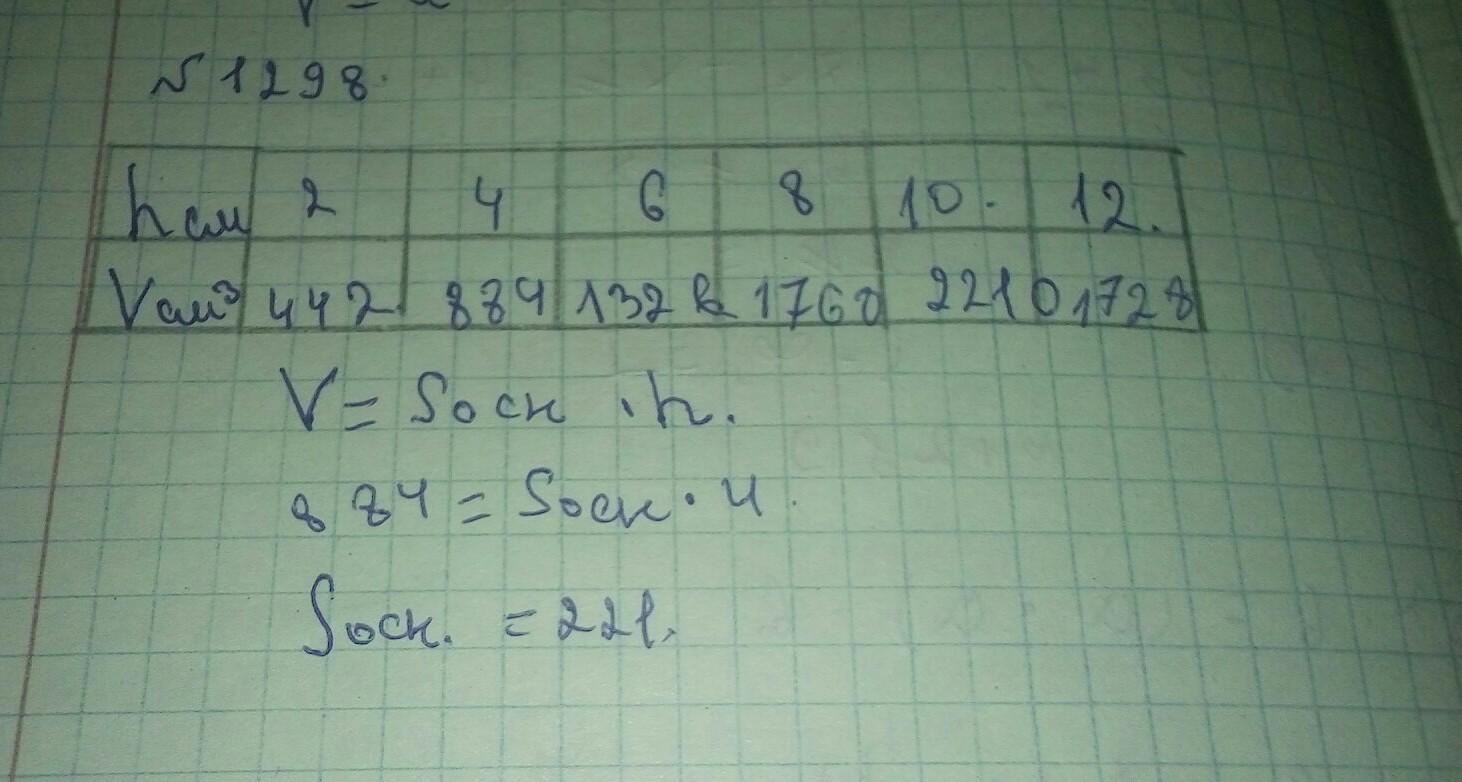 № 1298.
h см 2 4 6 8 10. 12.
V см³ 442 884 132 1760 2210 1728
V = Sосн · h.
884 = Sосн · 4.
Sосн. = 221.